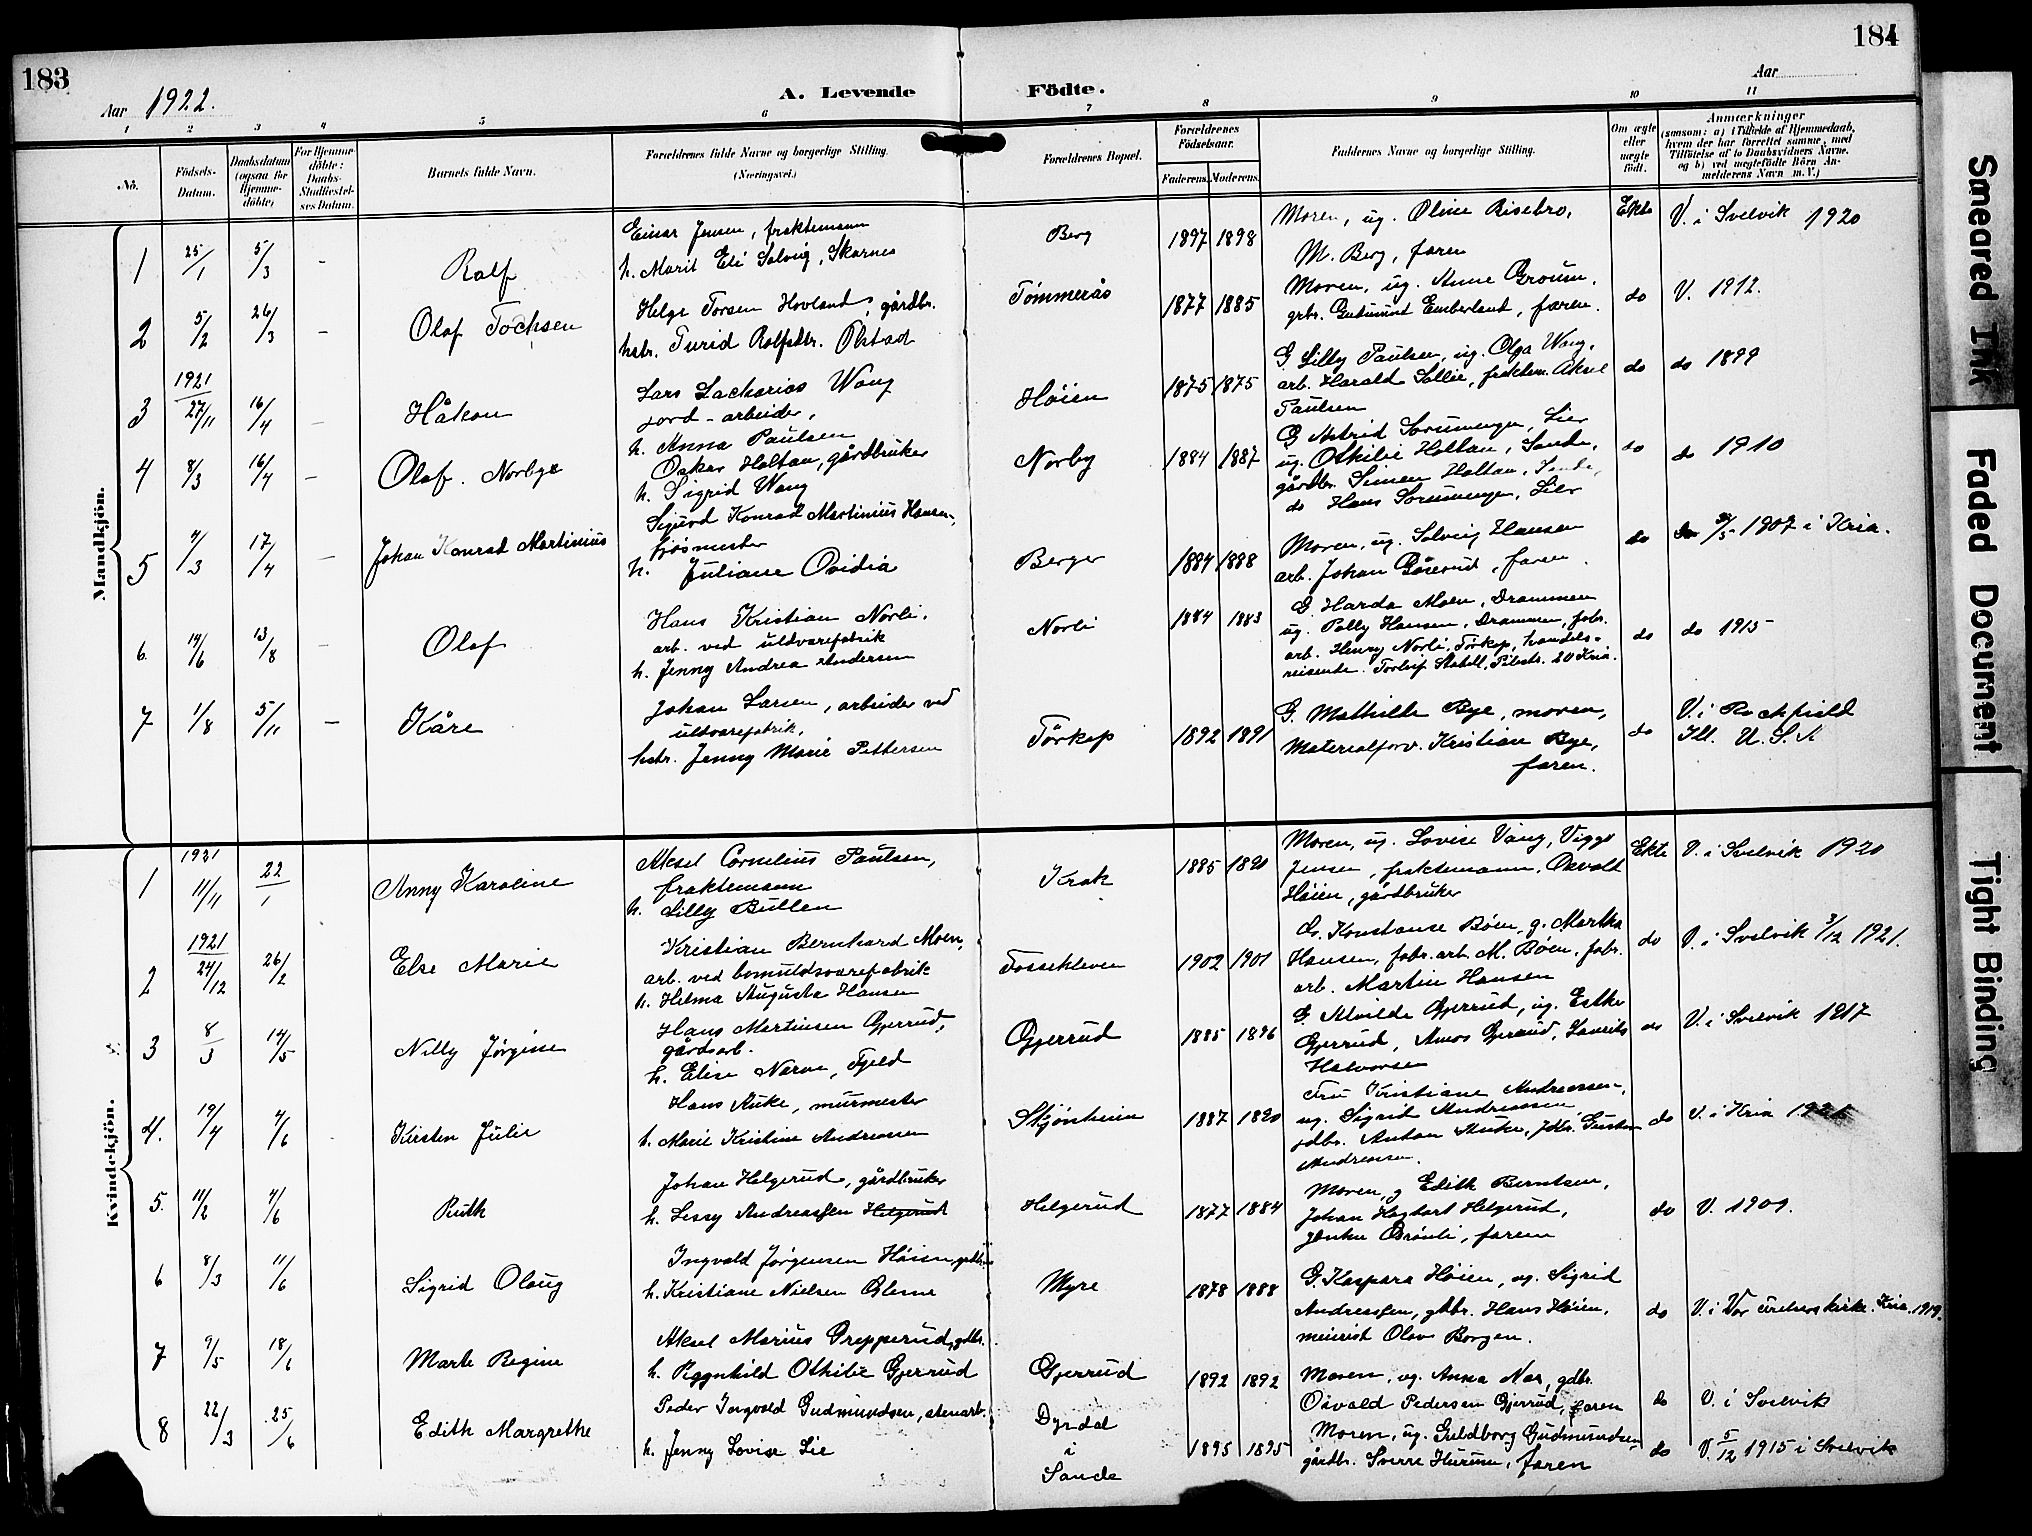 183
184
Aar 1922.
A. Levende Födte.
Aar
1 2 3 4 5 6 7 8 9 10 11
No.
Födsels-Datum.
Daabsdatum (ogsaa for Hjemme-döbte)
For Hjemme-döbte: Daabs-Stadfæstel-ses Datum.
Barnets fulde Navn.
Forældrenes fulde Navne og borgerlige Stilling.
(Næringsvei.)
Forældrenes Bopæl.
Forældrenes Födselsaar.
Faderens. Moderens.
Faddernes Navne og borgerlige Stilling.
Om ægte eller uægte födt.
Anmærkninger
(saasom: a) i Tilfælde af Hjemmedaab,
hvem der har forrettet samme, med
Tilföielse af to Daabsvidners Navne.
og b) ved uægtefödte Börn An-
melderens Navn m. V.)
Mandkjön.
1 25/1 5/3 - Rolf
Einar Jensen, fraktemann
h. Marit Eli Solveig, Skarnes
Berg 1897 1898
Moren, ug. Oline Risebro,
M. Berg, faren
Ekte V. i Svelvik 1920
2 5/2 26/3 - Olaf
Helge Torsen Hovland, gårdbr.
hstr. Turid Rolfsdtr. Ølstad
Tömmerås 1877 1885
Moren, ug. Anne
grbr. Gudmund Emberland, faren.
do V. 1912.
3 1921 27/11 16/4 - Håkon
Lars Zacharias Wang
jord-arbeider,
h. Anna Paulsen
Höien 1875 1875
G Lilly Paulsen, ug. Olga Wang,
arb. Harald Sollie, fraktem. Aksel
Paulsen
do do 1899
4 8/3 16/4 - Olaf. Norbye
Oskar Holtan, gårdbruker
h. Sigrid Wang
Norby 1884 1887
G Astrid Sorumengen, Lier
ug. Othilie Holtan, Sande,
gårdbr. Simen Holtan, Sande,
do Hans Sorumengen, Lier
do do 1910
5 9/3 17/4 - Johan Konrad Martinius
Sigurd Konrad Martinius Hansen,
fjösmester
h. Juliane Ovidia
Berger 1884 1888
Moren, ug. Solveig Hansen
arb. Johan Gåserud, faren.
do 1907 i Kria.
6. 14/6 13/8 - Olaf
Hans Kristian Norli.
arb. ved uldvarefabrik
h. Jenny Andrea Andersen
Norli 1884 1883
G. Harda Moen, Drammen
ug. Polly Hansen, Drammen, fabr.
arb. Henry Norli, Törkop, handels-
reisende. Torleif Stabell, Pilestr. 20 Kria.
do do 1915
7 1/8 5/11 - Kåre
Johan Larsen, arbeider ved
uldvarefabrik,
hstr. Jenny Marie Pettersen
Törkop 1892 1891
G. Mathilde Bye, moren,
Materialforv. Kristian Bye,
faren.
do V. i Rockfield
Ill. U. S. A
Kvindekjön.
1 1921 11/11 22/1 Anny Karoline
Aksel Cornelius Paulsen,
fraktemann
h. Lilly Bullen
Krok 1885 1890
Moren, ug. Lovise Vang, Viggo
Jensen, fraktemann, Osvald
Höien, gårdbruker
Ekte V. i Svelvik 1920
2 1921 24/12 26/2 Else Marie
Kristian Bernhard Moen,
arb. ved bomuldsvarefabrik
h. Helma Augusta Hansen
Fossekleven 1902 1901
G. Konstanse Böen, g. Martha
Hansen, fabr. arb. M. Böen, fabr.
arb. Martin Hansen
do V. i Svelvik 3/12 1921.
3 8/3 14/5 Nilly Jörgine
Hans Martinsen Gjerrud,
gårdsarb.
h. Elise Narve, Fjeld
Gjerrud 1885 1896
G. Alvilde Gjerrud, ug. Esther
Gjerrud, Amos Gjerrud, Laurits
Halvorsen
do V. i Svelvik 1917
4. 19/4 4/6 Kirsten Julie
Hans Auke, murmester
h. Marie Kristine Andreassen
Skjönheim 1887 1890
Fru Kristiane Andreassen,
ug. Sigrid Andreassen
Anton Auke, Gustav
Andreassen.
do V. i Kria
5. 11/2 4/6 Ruth
Johan Helgerud, gårdbruker
h. Lessy Andreassen Helgerud
Helgerud 1877 1884
Moren, g Edith Berntsen,
Johan Hagbart Helgerud,
Brönli, faren
do V. 1909.
6 8/3 11/6 Sigrid Olaug
Ingvald Jörgensen Höien,
h. Kristiane Nielsen Glerne
Myre 1878 1888
G. Kaspara Höien, ug. Sigrid
Andreassen, gdbr. Hans Höien,
meierist Olav Borgen.
do V. i Vor Frelsers kirke. Kria. 1919.
7 9/5 18/6 Marte Regine
Aksel Marius Grepperud, gdbr.
h. Ragnhild Othilie Gjerrud
Gjerrud 1892 1892
Moren, ug. Anna Nes, gdbr.
Osvald Pedersen Gjerrud, faren
do V. i Svelvik
8 22/3 25/6 Edith Margrethe
Peder Ingvald Gudmundsen, stenarb.
h. Jenny Lovise Lie
Dyrdal
i
Sande
1895 1895
Moren, ug. Guldborg Gudmundsen,
gårdbr. Sverre Hurum, faren
do V. 5/12 1915 i Svelvik
Smeared Ink
Faded Document
Tight Binding